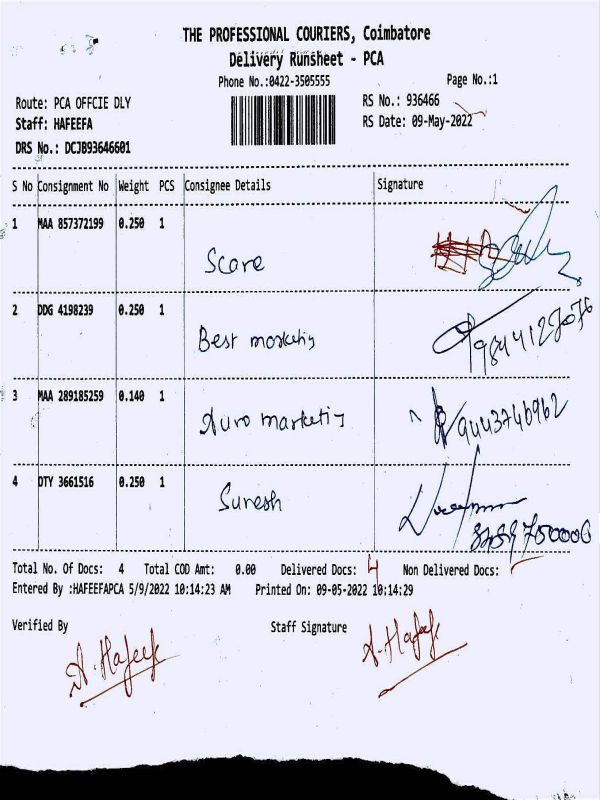 THE PROFESSIONAL COURIERS, Coimbatore
Delivery Runsheet - PCA
Phone No.:0422-3505555
Page No.:1
Route: PCA OFFCIE DLY
RS No.: 936466
Staff: HAFEEFA
RS Date: 09-May-2022
DRS No.: DCJB93646601
S No Consignment No Weight PCS Consignee Details Signature
1 MAA 857372199 0.250 1
Scare
2 DDG 4198239 0.250 1
Best marketing 9844127076
3 MAA 289185259 0.140 1
Auro marketing 9443746962
4 DTY 3661516 0.250 1
Suresh
Total No. Of Docs: 4 Total COD Amt: 0.00 Delivered Docs: 4 Non Delivered Docs:
Entered By :HAFEEFAPCA 5/9/2022 10:14:23 AM Printed On: 09-05-2022 10:14:29
Verified By Staff Signature
A. Hafeefa A. Hafeefa